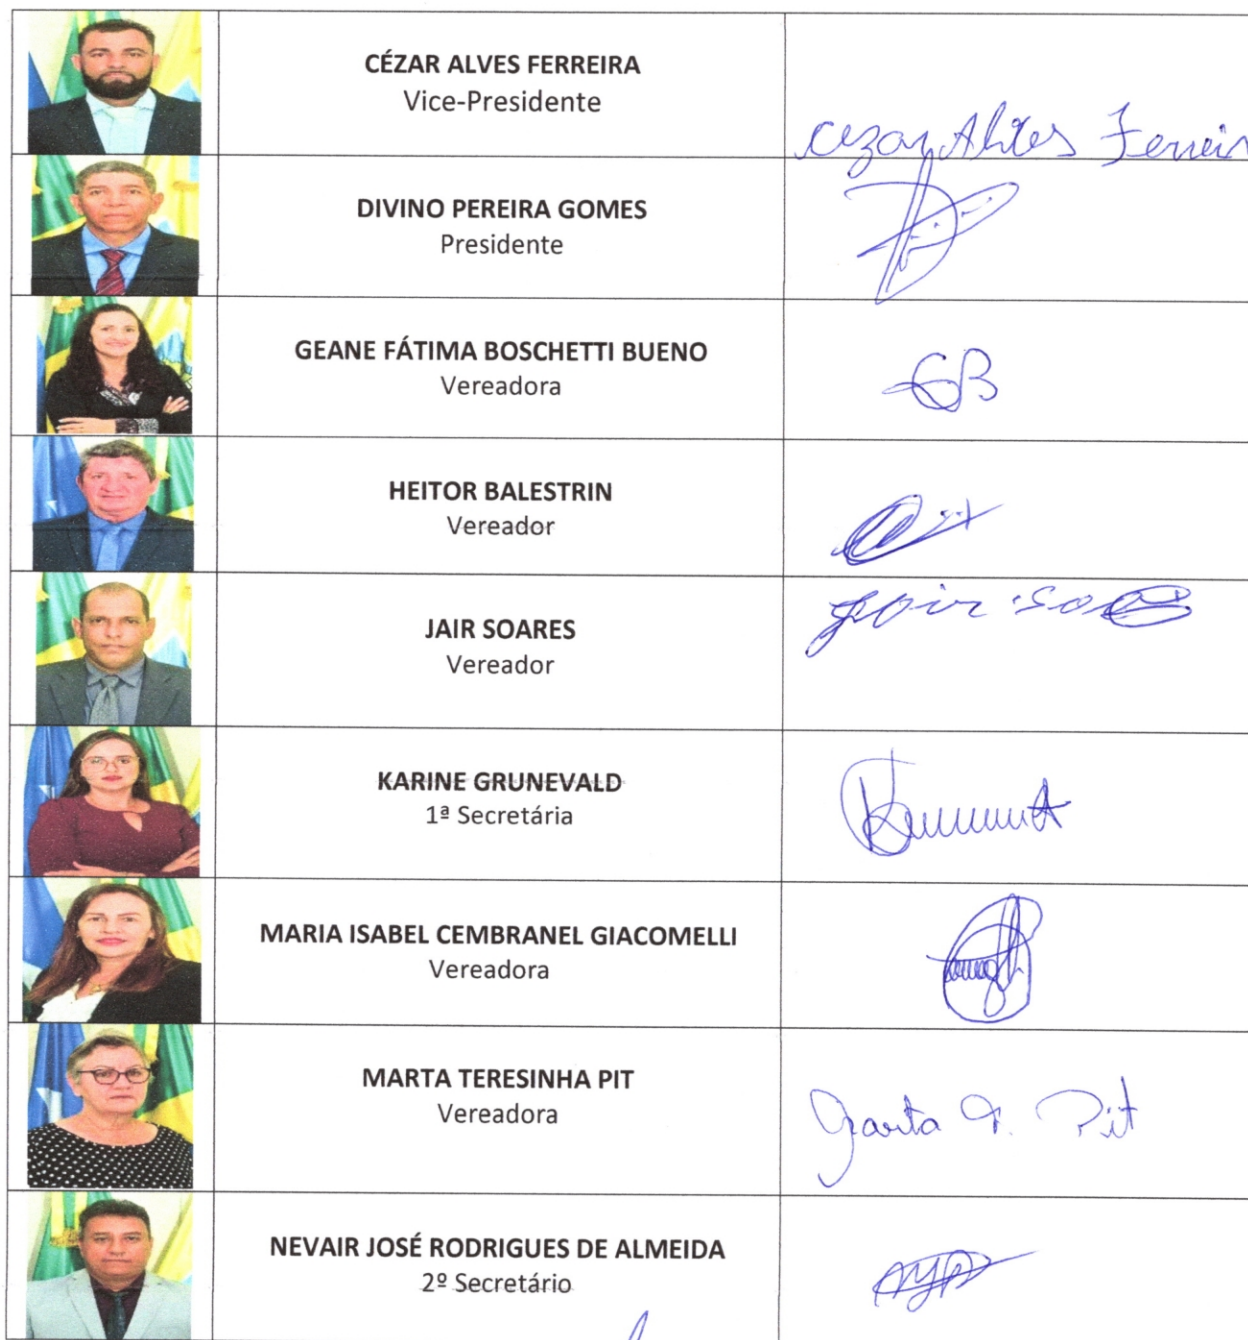 CÉZAR ALVES FERREIRA
Vice-Presidente
Cezar Alves Ferreir
DIVINO PEREIRA GOMES
Presidente
GEANE FÁTIMA BOSCHETTI BUENO
Vereadora
GB
HEITOR BALESTRIN
Vereador
JAIR SOARES
Vereador
Jair Soares
KARINE GRUNEVALD
1ª Secretária
MARIA ISABEL CEMBRANEL GIACOMELLI
Vereadora
MARTA TERESINHA PIT
Vereadora
Marta T. Pit
NEVAIR JOSÉ RODRIGUES DE ALMEIDA
2º Secretário